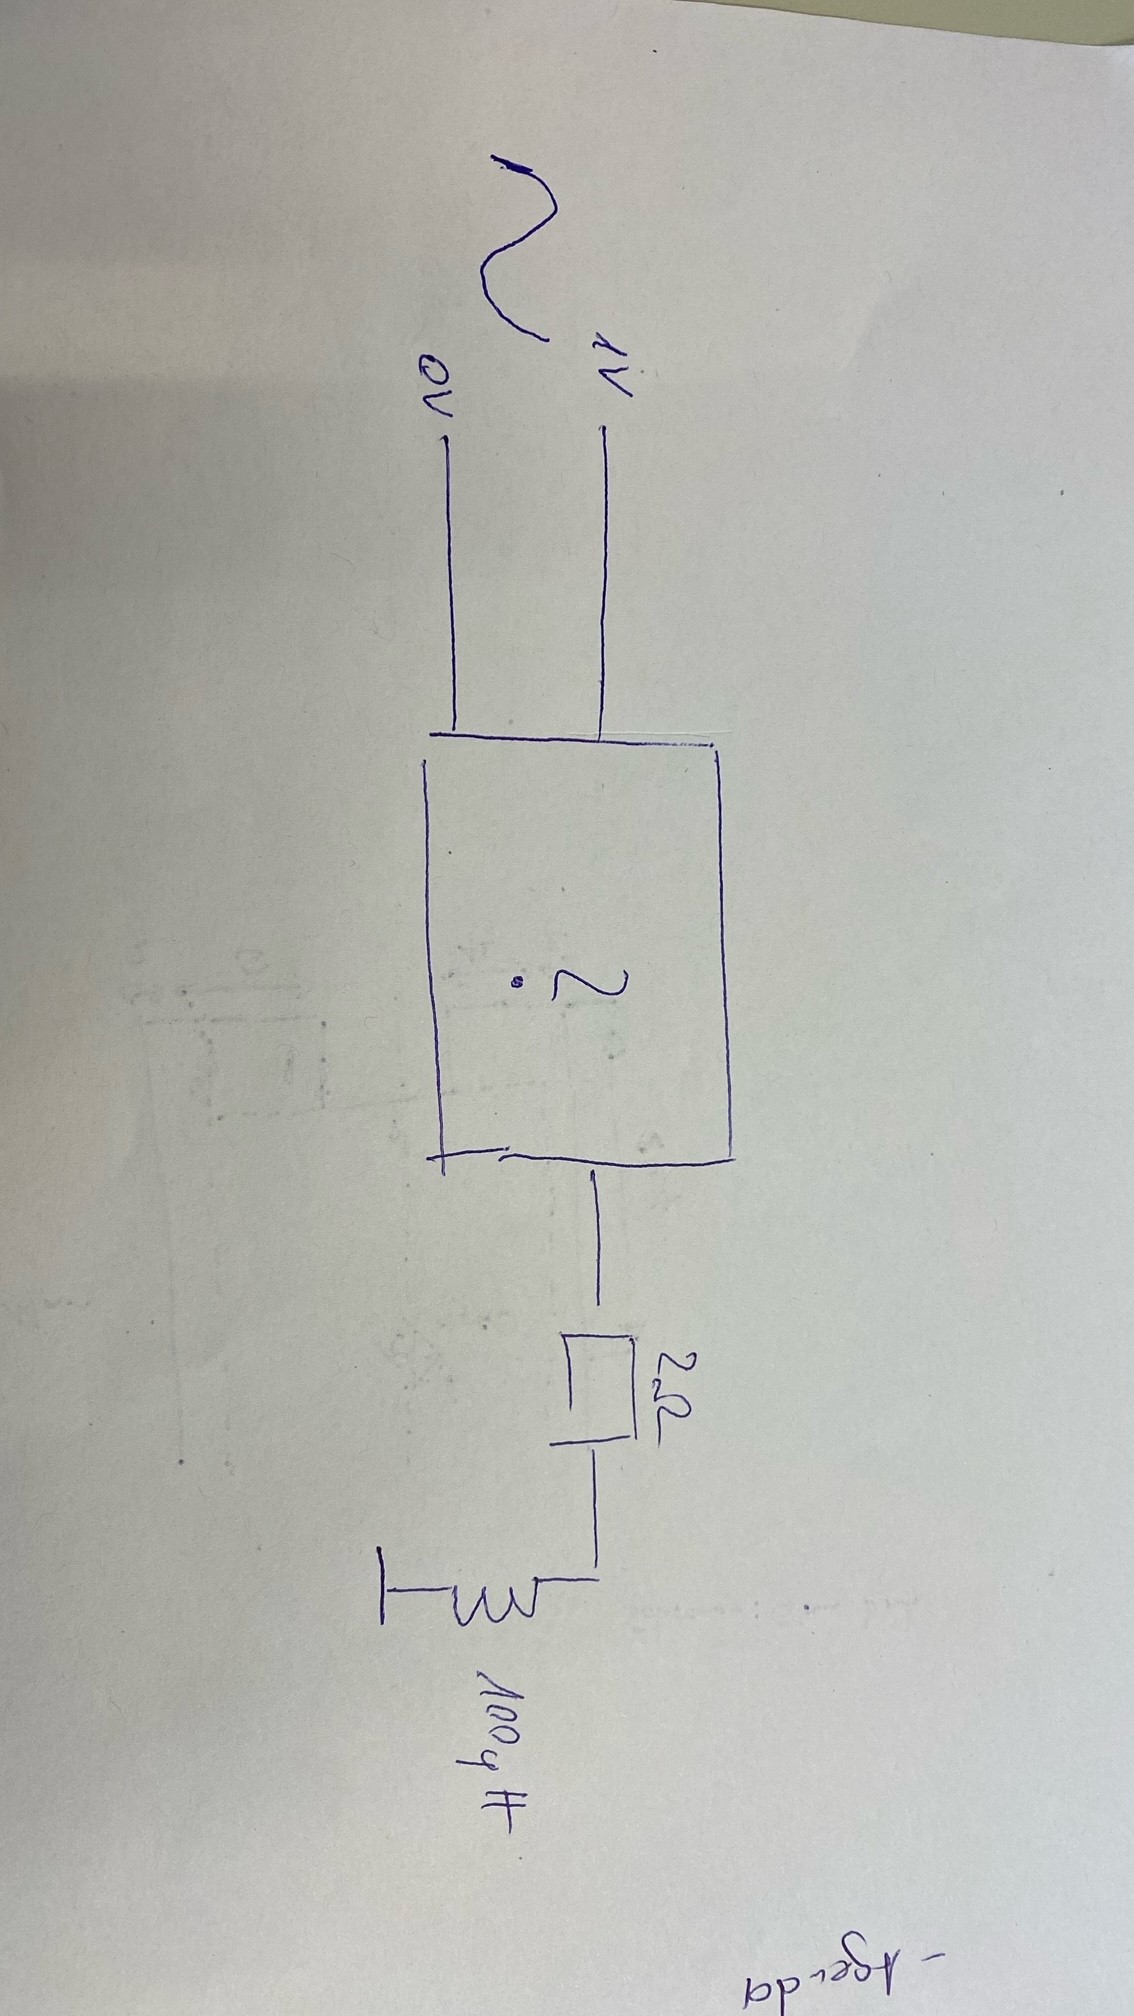 1V
0V
?
2Ω
100μH
- Agenda